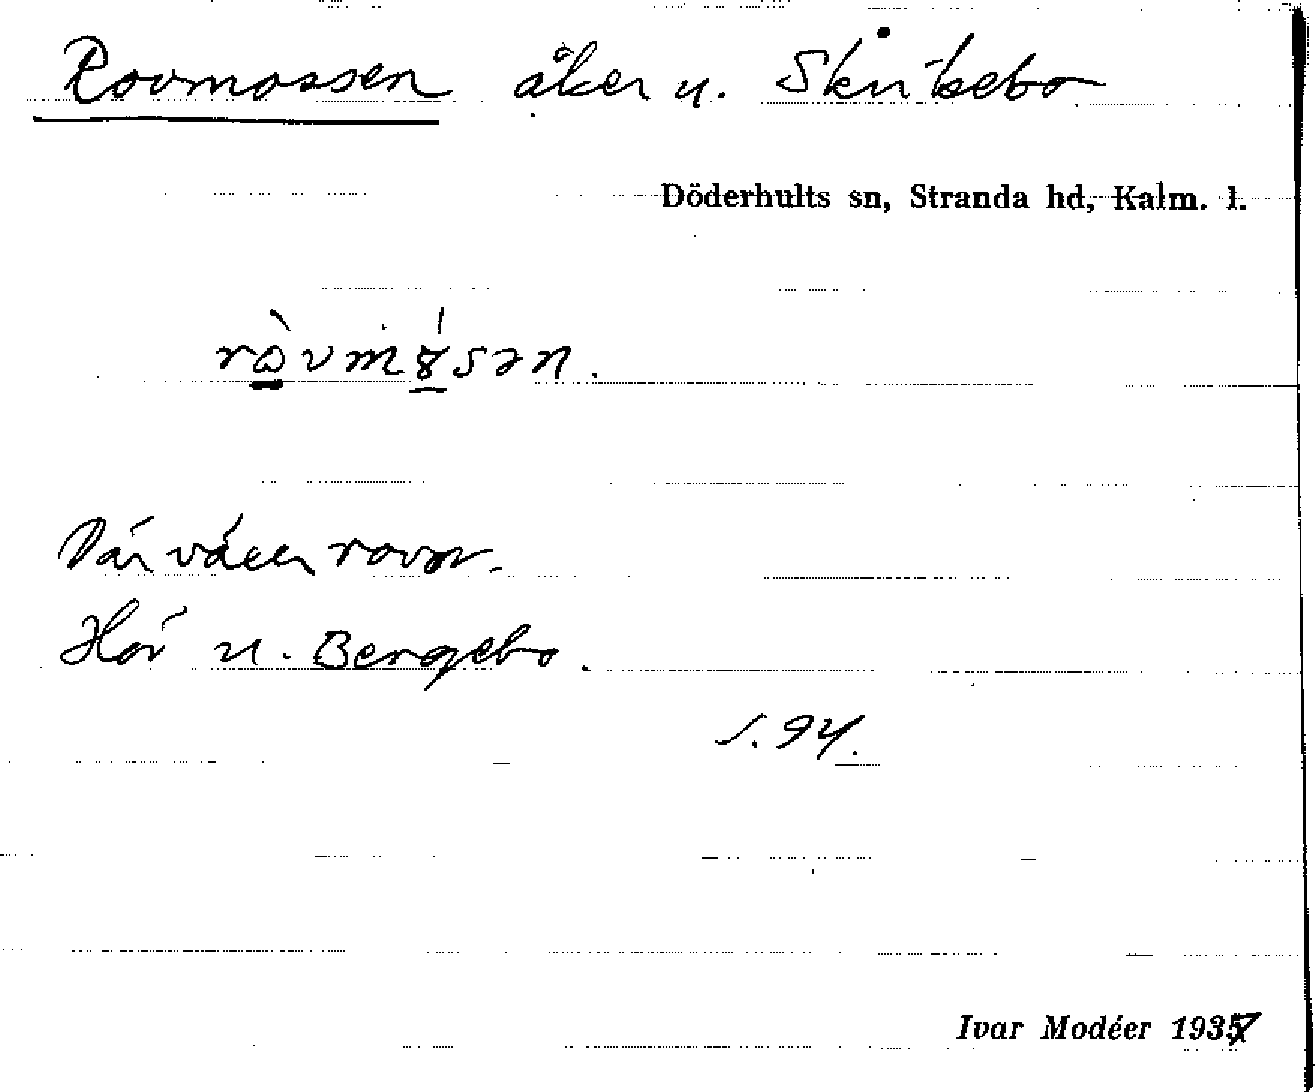 Rovmossen åker u. Skrikebo
Döderhults sn, Stranda hd, Kalm. l.
Där växer rovor.
Hör u. Bergebo.
s. 94.
Ivar Modéer 1937